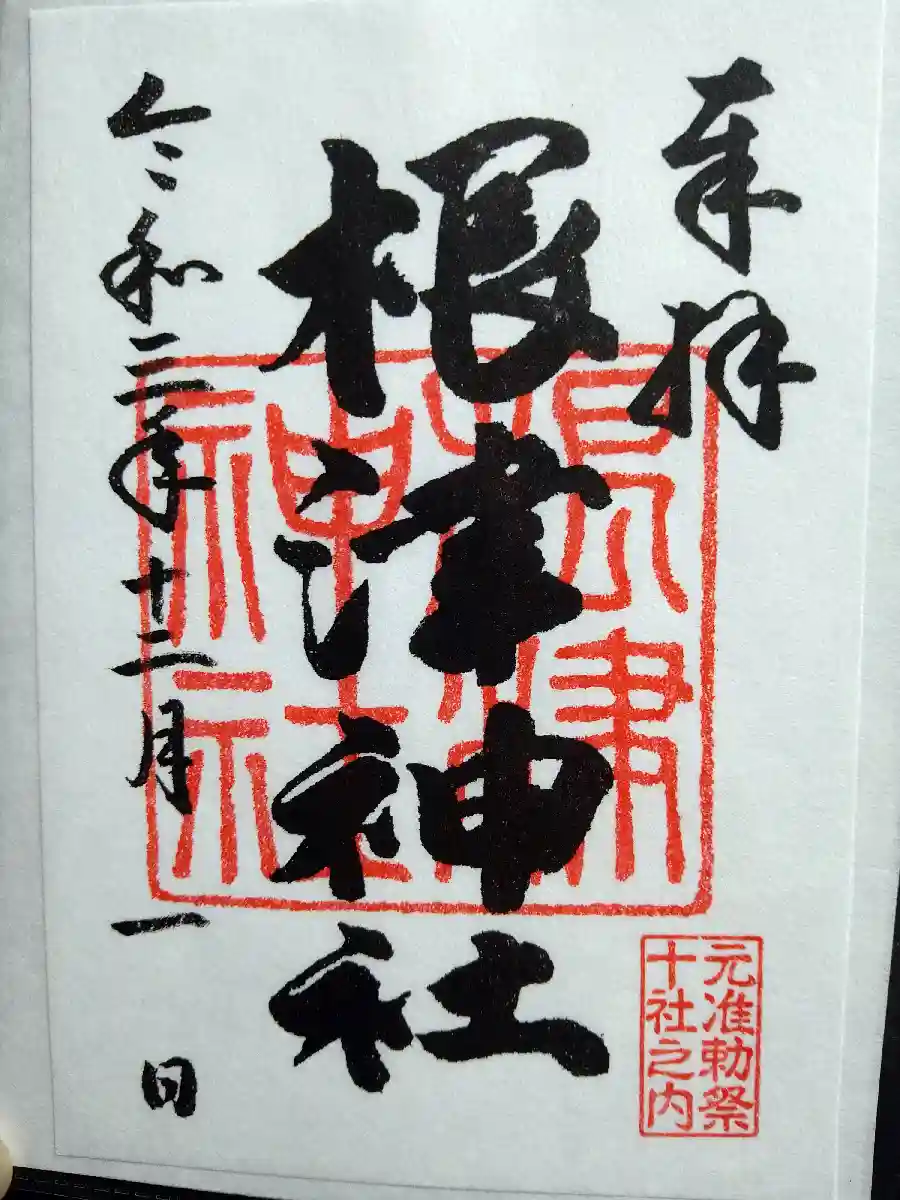 奉拝
根津神社
令和三年十二月一日
根津
神社
元准勅祭
十社之内